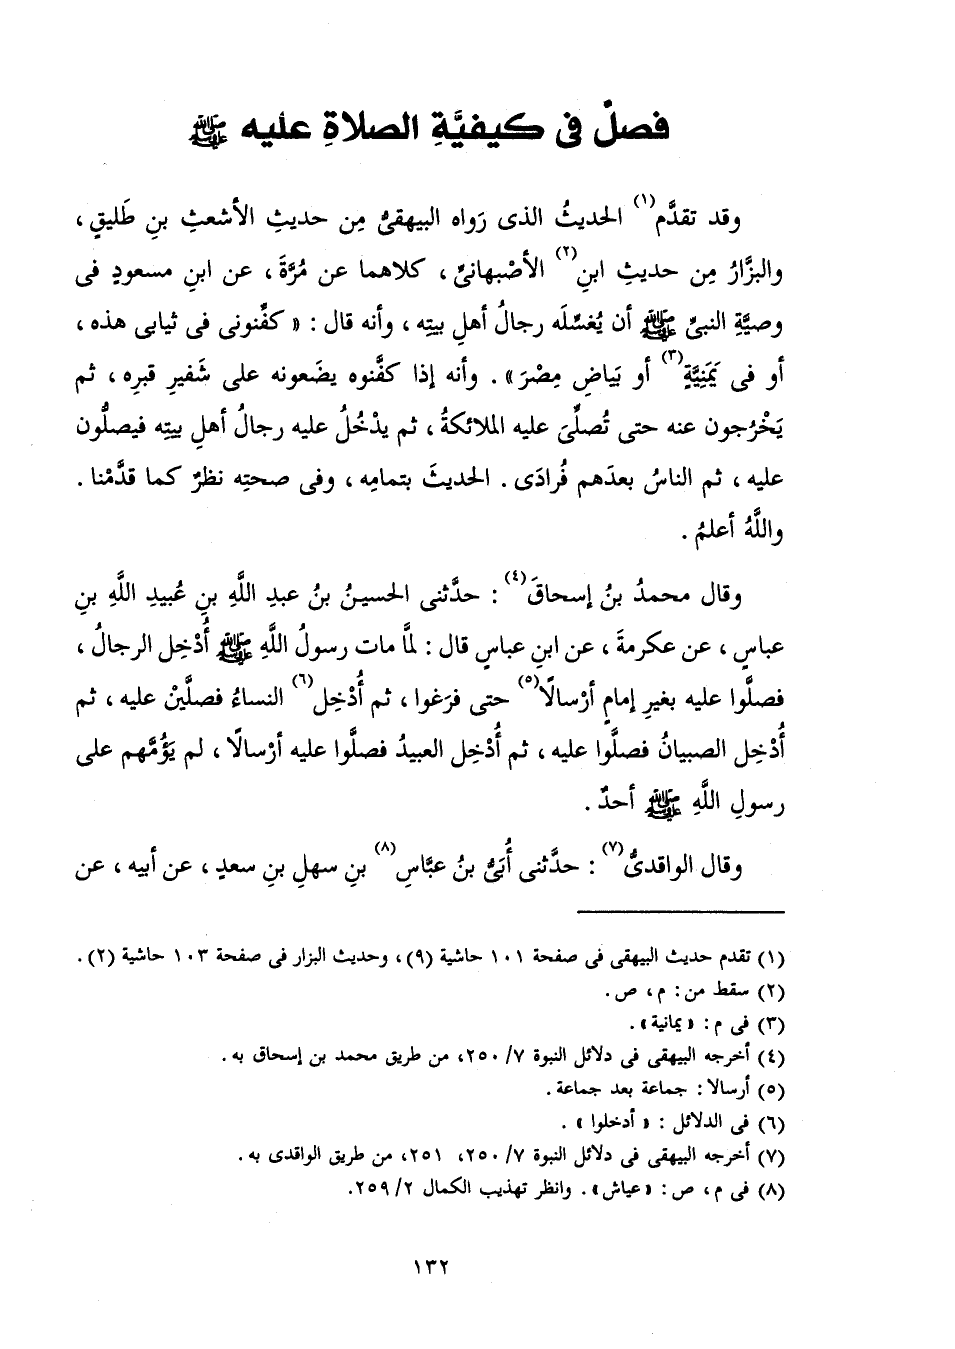 فصلٌ فى كيفيَّةِ الصلاةِ عليه ﷺ
وقد تقدَّم(١) الحديثُ الذى رَواه البيهقىُّ مِن حديثِ الأشعثِ بنِ طَليقٍ ،
والبزَّارُ مِن حديثِ ابنِ(٢) الأصْبهانىِّ ، كلاهما عن مُرَّةَ ، عن ابنِ مسعودٍ فى
وصيَّةِ النبىِّ ﷺ أن يُغسِّلَه رجالُ أهلِ بيتِه ، وأنه قال : « كفِّنونى فى ثيابى هذه ،
أو فى يَمَنِيَّةٍ(٣) أو بَياضِ مِصْرَ» . وأنه إذا كفَّنوه يضَعونه على شَفيرِ قبرِه ، ثم
يَخْرُجون عنه حتى تُصلِّىَ عليه الملائكةُ ، ثم يدْخُلُ عليه رجالُ أهلِ بيتِه فيصلُّون
عليه ، ثم الناسُ بعدَهم فُرادَى . الحديثَ بتمامِه ، وفى صحتِه نظرٌ كما قدَّمْنا .
واللَّهُ أعلمُ .
وقال محمدُ بنُ إسحاقَ(٤) : حدَّثنى الحسينُ بنُ عبدِ اللَّهِ بنِ عُبيدِ اللَّهِ بنِ
عباسٍ ، عن عكرمةَ ، عن ابنِ عباسٍ قال : لمَّا مات رسولُ اللَّهِ ﷺ أُدْخِل الرجالُ ،
فصلَّوا عليه بغيرِ إمامٍ أرْسالًا(٥) حتى فرَغوا ، ثم أُدْخِل(٦) النساءُ فصلَّيْن عليه ، ثم
أُدْخِل الصبيانُ فصلَّوا عليه ، ثم أُدْخِل العبيدُ فصلَّوا عليه أرْسالًا ، لم يَؤُمَّهم على
رسولِ اللَّهِ ﷺ أحدٌ .
وقال الواقدىُّ(٧) : حدَّثنى أُبَىُّ بنُ عبَّاسِ(٨) بنِ سهلِ بنِ سعدٍ ، عن أبيه ، عن
(١) تقدم حديث البيهقى فى صفحة ١٠١ حاشية (٩)، وحديث البزار فى صفحة ١٠٣ حاشية (٢) .
(٢) سقط من : م ، ص .
(٣) فى م : « يمانية» .
(٤) أخرجه البيهقى فى دلائل النبوة ٧/ ٢٥٠، من طريق محمد بن إسحاق به .
(٥) أرسالا : جماعة بعد جماعة .
(٦) فى الدلائل : « أدخلوا » .
(٧) أخرجه البيهقى فى دلائل النبوة ٧/ ٢٥٠، ٢٥١، من طريق الواقدى به .
(٨) فى م ، ص : «عياش» . وانظر تهذيب الكمال ٢/ ٢٥٩.
١٣٢